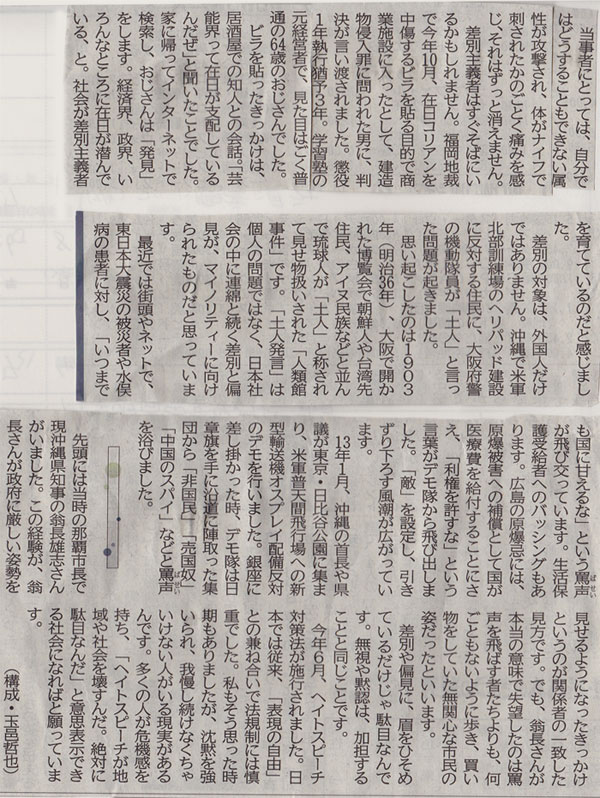 当事者にとっては、自分で
はどうすることもできない属
性が攻撃され、体がナイフで
刺されたかのごとく痛みを感
じ、それはずっと消えません。
差別主義者はすぐそばにい
るかもしれません。福岡地裁
で今年10月、在日コリアンを
中傷するビラを貼る目的で商
業施設に入ったとして、建造
物侵入罪に問われた男に、判
決が言い渡されました。懲役
1年執行猶予3年。学習塾の
元経営者で、見た目はごく普
通の64歳のおじさんでした。
ビラを貼ったきっかけは、
居酒屋での知人との会話。「芸
能界って在日が支配している
んだぜ」と聞いたことでした。
家に帰ってインターネットで
検索し、おじさんは「発見」
をします。経済界、政界、い
ろんなところに在日が潜んで
いる、と。社会が差別主義者
を育てているのだと感じまし
た。
差別の対象は、外国人だけ
ではありません。沖縄で米軍
北部訓練場のヘリパッド建設
に反対する住民に、大阪府警
の機動隊員が「土人」と言っ
た問題が起きました。
思い起こしたのは1903
年（明治36年）、大阪で開か
れた博覧会で朝鮮人や台湾先
住民、アイヌ民族などと並ん
で琉球人が「土人」と称され
て見せ物扱いされた「人類館
事件」です。「土人発言」は
個人の問題ではなく、日本社
会の中に連綿と続く差別と偏
見が、マイノリティーに向け
られたものだと思っていま
す。
最近では街頭やネットで、
東日本大震災の被災者や水俣
病の患者に対し、「いつまで
も国に甘えるな」という罵声
が飛び交っています。生活保
護受給者へのバッシングもあ
ります。広島の原爆忌には、
原爆被害への補償として国が
医療費を給付することにさ
え、「利権を許すな」という
言葉がデモ隊から飛び出しま
した。「敵」を設定し、引き
ずり下ろす風潮が広がってい
ます。
13年1月、沖縄の首長や県
議が東京・日比谷公園に集ま
り、米軍普天間飛行場への新
型輸送機オスプレイ配備反対
のデモを行いました。銀座に
差し掛かった時、デモ隊は日
章旗を手に沿道に陣取った集
団から「非国民」「売国奴」
「中国のスパイ」などと罵声
ばせい
を浴びました。
先頭には当時の那覇市長で
現沖縄県知事の翁長雄志さん
がいました。この経験が、翁
長さんが政府に厳しい姿勢を
見せるようになったきっかけ
というのが関係者の一致した
見方です。でも、翁長さんが
本当の意味で失望したのは罵
声を飛ばす者たちよりも、何
ごともないように歩き、買い
物をしていた無関心な市民の
姿だったといいます。
差別や偏見に、眉をひそめ
ているだけじゃ駄目なんで
す。無視や黙認は、加担する
ことと同じことです。
今年6月、ヘイトスピーチ
対策法が施行されました。日
本では従来、「表現の自由」
との兼ね合いで法規制には慎
重でした。私もそう思った時
期もありましたが、沈黙を強
いられ、我慢し続けなくちゃ
いけない人がいる現実がある
んです。多くの人が危機感を
持ち、「ヘイトスピーチが地
域や社会を壊すんだ。絶対に
駄目なんだ」と意思表示でき
る社会になればと願っていま
す。
（構成・玉邑哲也）